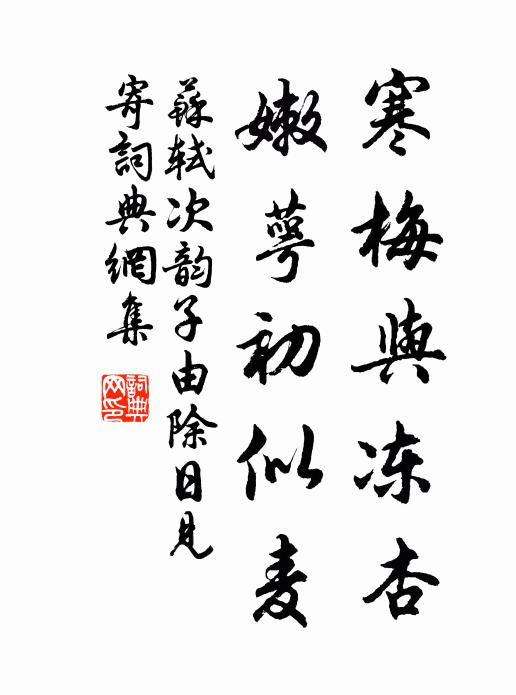 寒梅與冻杏
嫩萼初似麦
蘇軾次韵子由除日見
寄詞典網集
詞典
网印